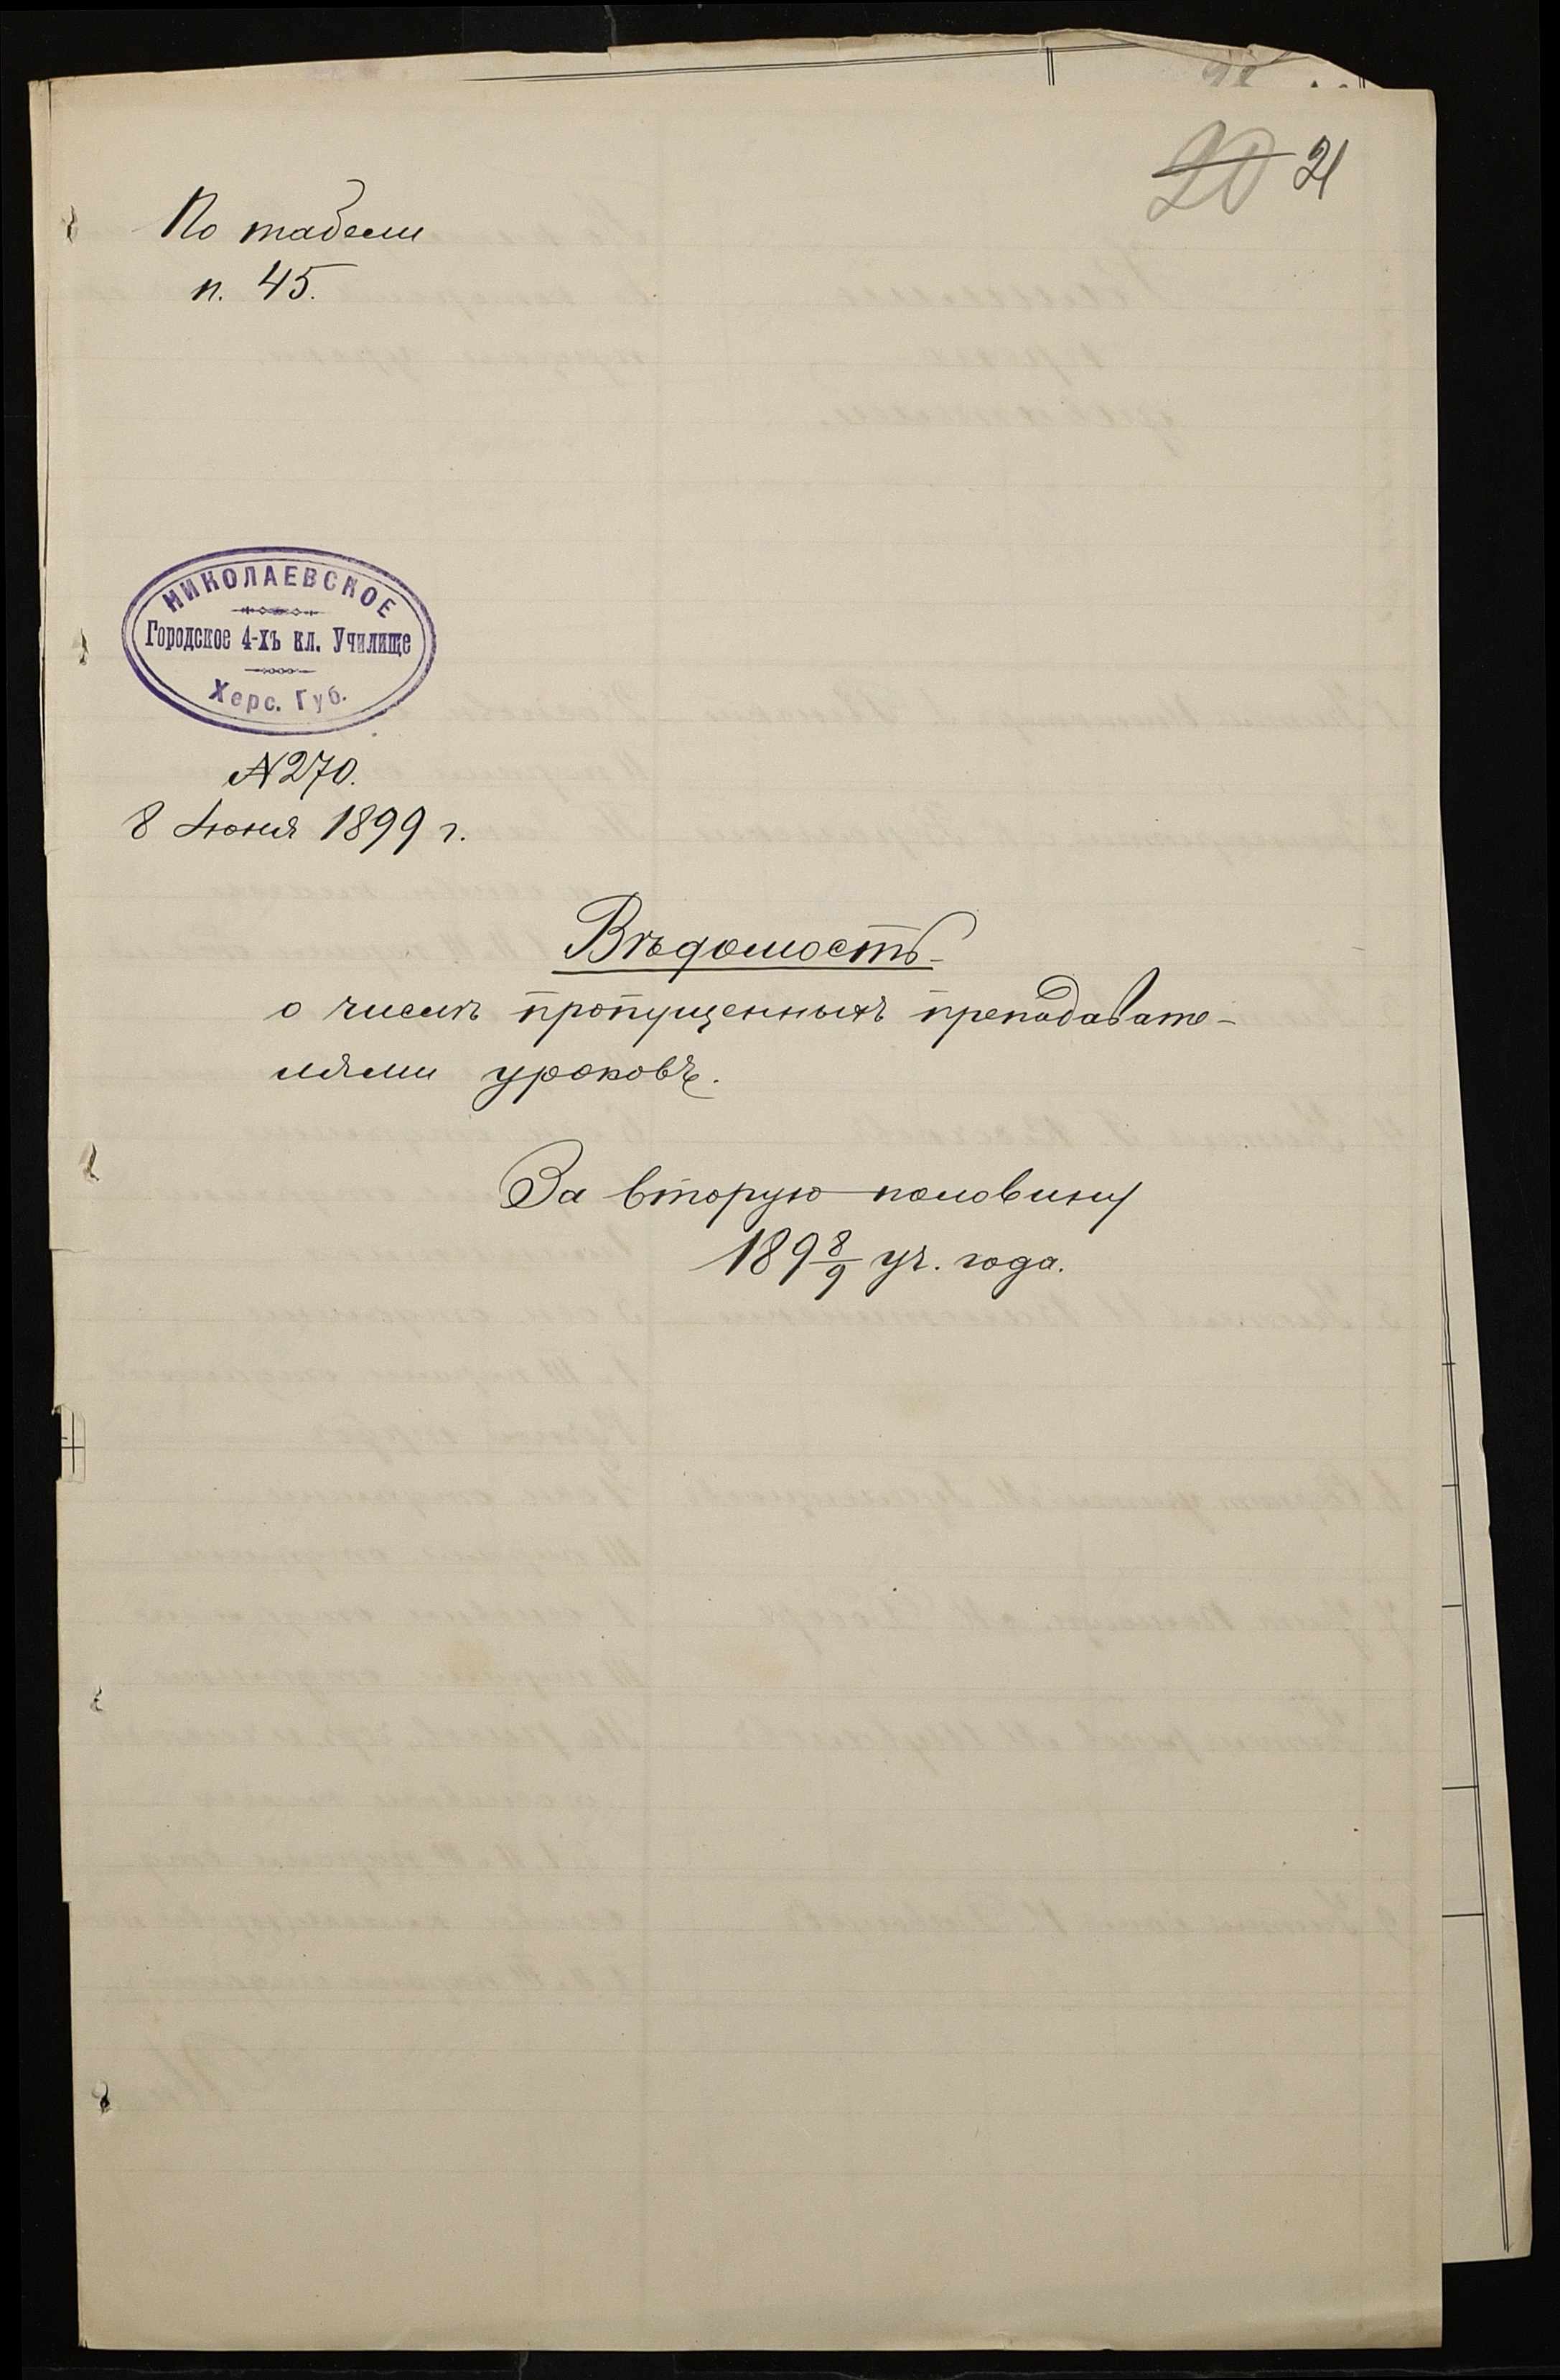 20 21
По табели
п. 45.
НИКОЛАЕВСКОЕ
Городское 4-хъ кл. Училище
Херс. Губ.
№ 270.
8 Іюня 1899 г.
Вѣдомость
о числѣ пропущенныхъ преподавате-
лями уроковъ.
За вторую половину
189 8/9 уч. года.